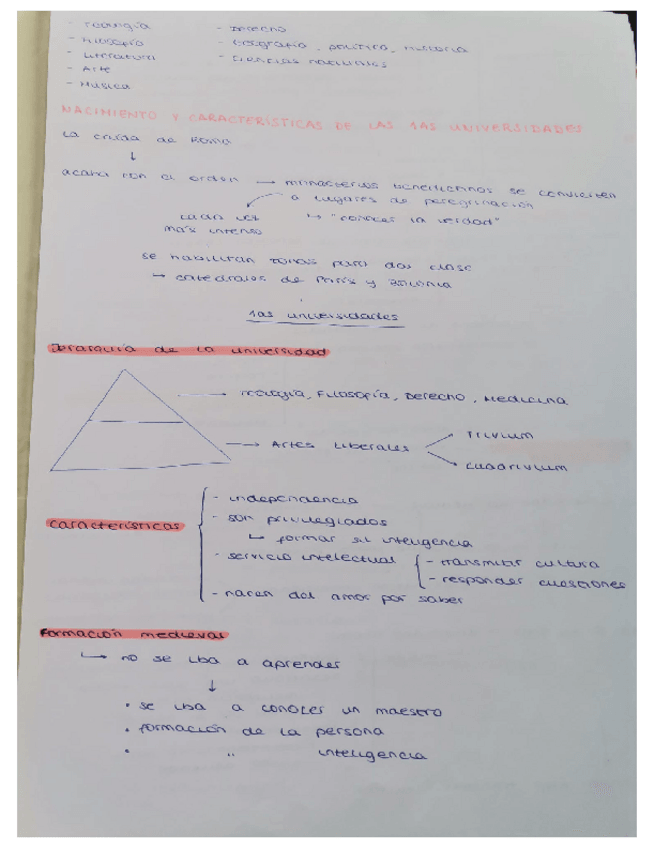 - Teología - Derecho
- Filosofía - Geografía, política, historia
- Literatura - Ciencias naturales
- Arte
- Música
NACIMIENTO Y CARACTERÍSTICAS DE LAS 1AS UNIVERSIDADES
La caída de Roma
↓
acaba con el orden → monasterios benedictinos se convierten
a lugares de peregrinación
cada vez ↳ "conocer la verdad"
más intenso
se habilitan zonas para dar clase
→ catedrales de París y Bolonia
1as universidades
Jerarquía de la universidad
→ Teología, Filosofía, Derecho, Medicina
→ Artes Liberales Trivium
Cuadrivium
características
- independencia
- son privilegiados
↳ formar su inteligencia
- servicio intelectual - transmitir cultura
- responder cuestiones
- nacen del amor por saber
Formación medieval
↳ no se iba a aprender
↓
• se iba a conocer un maestro
• formación de la persona
• " inteligencia